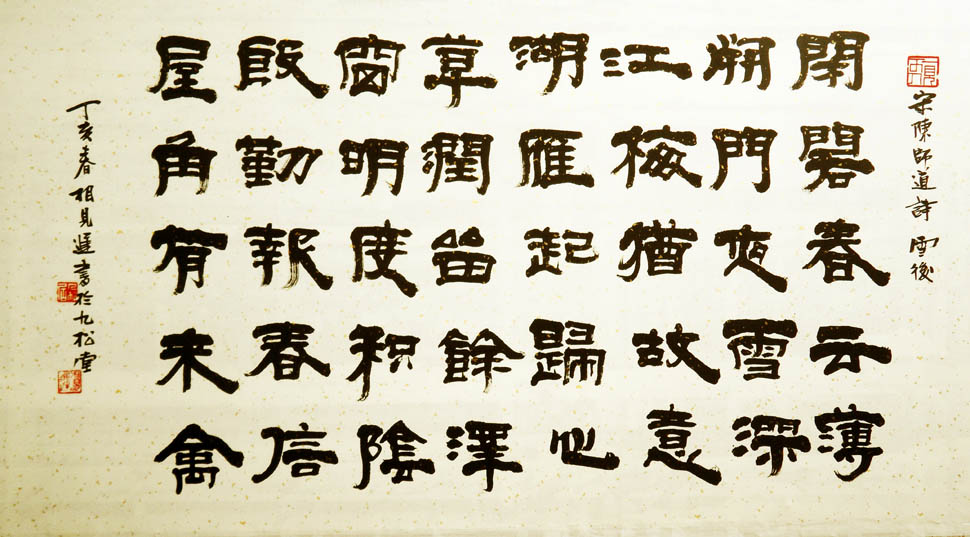 宋陳師道詩 雪後
閉閣春云薄
開門夜雪深
江梅猶故意
湖雁起歸心
草潤留餘澤
窗明度积陰
殷勤報春信
屋角有来禽
丁亥春相見遲書於九松堂